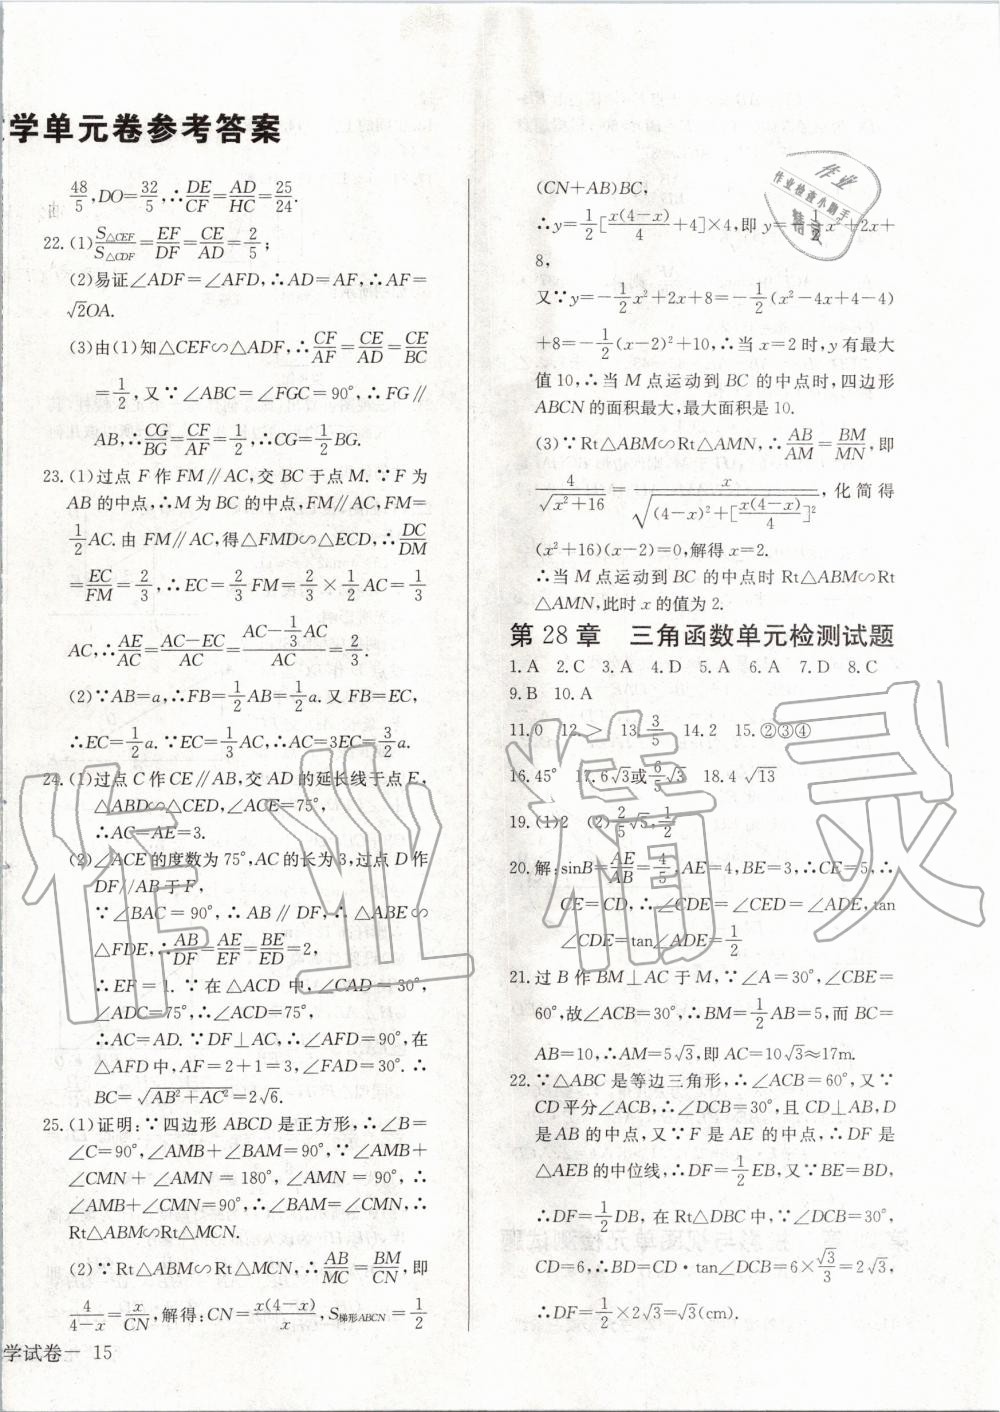 学单元卷参考答案
48/5,DO=32/5,∴DE/CF=AD/HC=25/24.
22.(1)S△CEF/S△CDF=EF/DF=CE/AD=2/5;
(2)易证∠ADF=∠AFD,∴AD=AF,∴AF=
√2OA.
(3)由(1)知△CEF∽△ADF,∴CF/AF=CE/AD=CE/BC
=1/2,又∵∠ABC=∠FGC=90°,∴FG∥
AB,∴CG/BG=CF/AF=1/2,∴CG=1/2BG.
23.(1)过点F作FM∥AC,交BC于点M.∵F为
AB的中点,∴M为BC的中点,FM∥AC,FM=
1/2AC.由FM∥AC,得△FMD∽△ECD,∴DC/DM
=EC/FM=2/3,∴EC=2/3FM=2/3×1/2AC=1/3
AC,∴AE/AC=(AC-EC)/AC=(AC-1/3AC)/AC=2/3.
(2)∵AB=a,∴FB=1/2AB=1/2a.又FB=EC,
∴EC=1/2a.∵EC=1/3AC,∴AC=3EC=3/2a.
24.(1)过点C作CE∥AB,交AD的延长线于点E,
△ABD∽△CED,∠ACE=75°,
∴AC=AE=3.
(2)∠ACE的度数为75°,AC的长为3,过点D作
DF∥AB于F,
∵∠BAC=90°,∴AB∥DF,∴△ABE∽
△FDE,∴AB/DF=AE/EF=BE/ED=2,
∴EF=1.∵在△ACD中,∠CAD=30°,
∠ADC=75°,∴∠ACD=75°,
∴AC=AD.∵DF⊥AC,∴∠AFD=90°,在
△AFD中,AF=2+1=3,∠FAD=30°.∴
BC=√(AB²+AC²)=2√6.
25.(1)证明:∵四边形ABCD是正方形,∴∠B=
∠C=90°,∠AMB+∠BAM=90°.∵∠AMB+
∠CMN+∠AMN=180°,∠AMN=90°,∴
∠AMB+∠CMN=90°,∴∠BAM=∠CMN,∴
Rt△ABM∽Rt△MCN.
(2)∵Rt△ABM∽Rt△MCN,∴AB/MC=BM/CN,即
4/(4-x)=x/CN,解得:CN=x(4-x)/x,S梯形ABCN=1/2
学试卷一 15
(CN+AB)BC,
∴y=1/2[x(4-x)/4+4]×4,即y=-1/2x²+2x+
8,
又∵y=-1/2x²+2x+8=-1/2(x²-4x+4-4)
+8=-1/2(x-2)²+10,∴当x=2时,y有最大
值10,∴当M点运动到BC的中点时,四边形
ABCN的面积最大,最大面积是10.
(3)∵Rt△ABM∽Rt△AMN,∴AB/AM=BM/MN,即
4/√(x²+16)=x/√((4-x)²+[x(4-x)/4]²),化简得
(x²+16)(x-2)=0,解得x=2.
∴当M点运动到BC的中点时Rt△ABM∽Rt
△AMN,此时x的值为2.
第28章 三角函数单元检测试题
1.A 2.C 3.A 4.D 5.A 6.A 7.D 8.C
9.B 10.A
11.0 12.> 13.3/5 14.2 15.②③④
16.45° 17.6√3或6/5√3 18.4√13
19.(1)2 (2)2/5√5,1/2
20.解:sinB=AE/AB=4/5,AE=4,BE=3,∴CE=5,∴
CE=CD,∴∠CDE=∠CED=∠ADE,tan
∠CDE=tan∠ADE=1/2
21.过B作BM⊥AC于M,∵∠A=30°,∠CBE=
60°,故∠ACB=30°,∴BM=1/2AB=5,而BC=
AB=10,∴AM=5√3,即AC=10√3≈17m.
22.∵△ABC是等边三角形,∴∠ACB=60°,又∵
CD平分∠ACB,∴∠DCB=30°,且CD⊥AB,D
是AB的中点,又∵F是AE的中点,∴DF是
△AEB的中位线,∴DF=1/2EB,又∵BE=BD,
∴DF=1/2DB,在Rt△DBC中,∵∠DCB=30°,
CD=6,∴BD=CD·tan∠DCB=6×√3/3=2√3,
∴DF=1/2×2√3=√3(cm).
作业
作业检查小助手
精灵
作业精灵